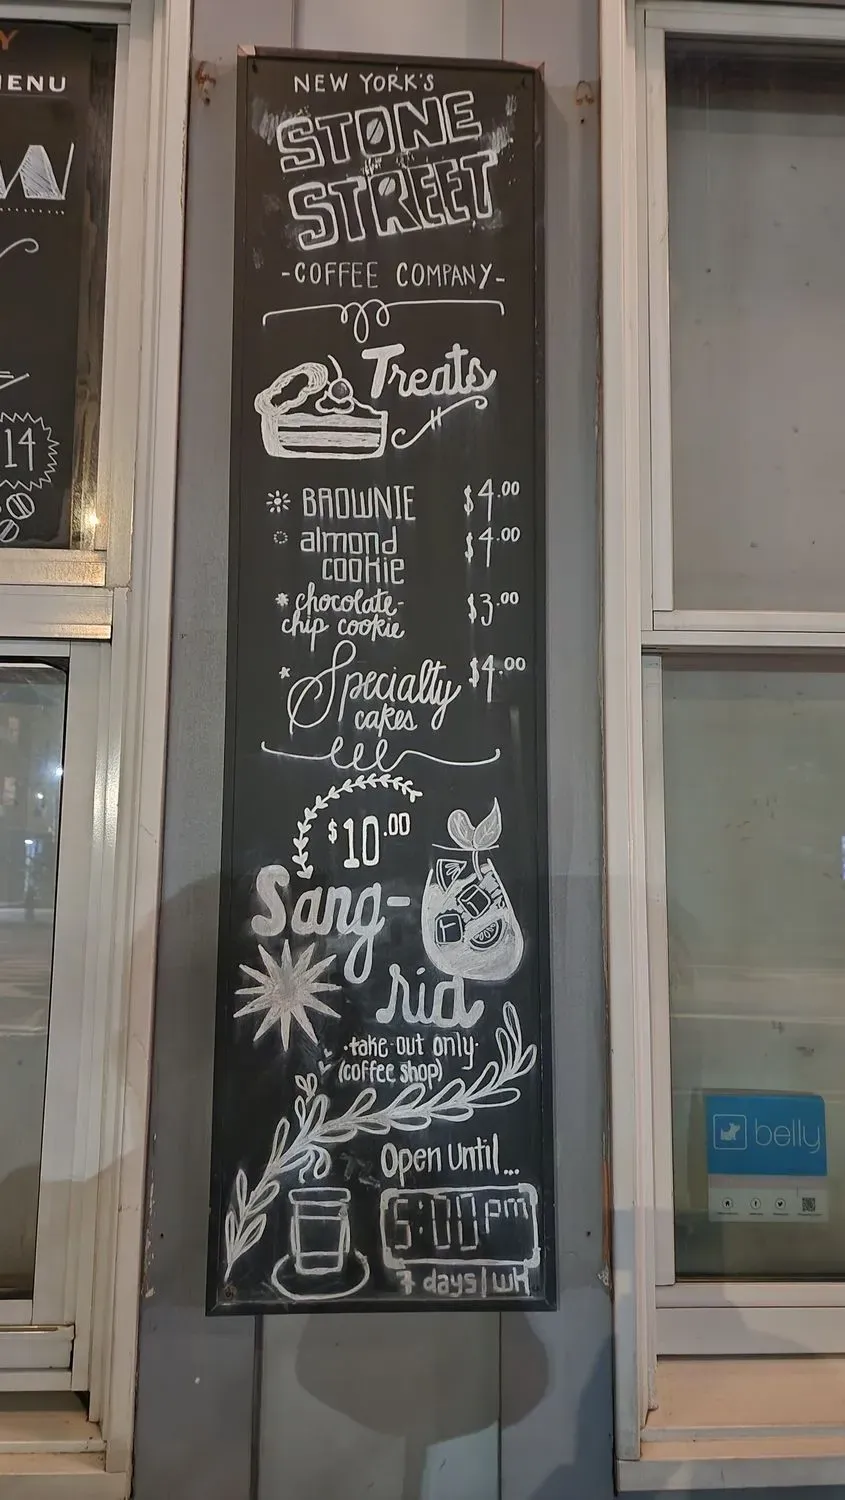 MENU
W
14
NEW YORK'S
STONE
STREET
-COFFEE COMPANY-
Treats
BROWNIE $4.00
almond $4.00
cookie
chocolate- $3.00
chip cookie
Specialty $4.00
cakes
$10.00
Sang-
ria
·take-out only·
(coffee shop)
Open Until...
5:00 pm
7 days/wk
belly